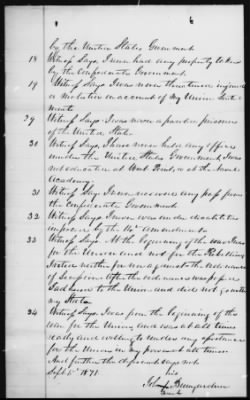 by the United States Government
18 Witness Says I never had any property taken
by the Confederate Government
19 Witness Says I was never threatened injured
or molested on account of my Union Senti
ments
29 Witness Says I was never a parolee prisoner
of the United States
30 Witness Says I have never held any office
under the United States Government I was
not educated at West Point or at the Naval
Academy.
31 Witness Says I never received any pass from
the Confederate Government
32 Witness Says I never was under disabilities
imposed by the 14th amendment
33 Witness Says. At the beginning of the war I was
for the Union and not for the Rebellion
I voted neither for nor against the ordinance
of Secession After the ordinance was passed
I adhered to the Union and did not go with
my State
34 Witness Says. I was from the beginning of the
war for the Union and was at all times
ready and willing to under any
for the Union in my at all times
And further the deponent says not
Sept 5" 1871. his
John Bumgardner
mark